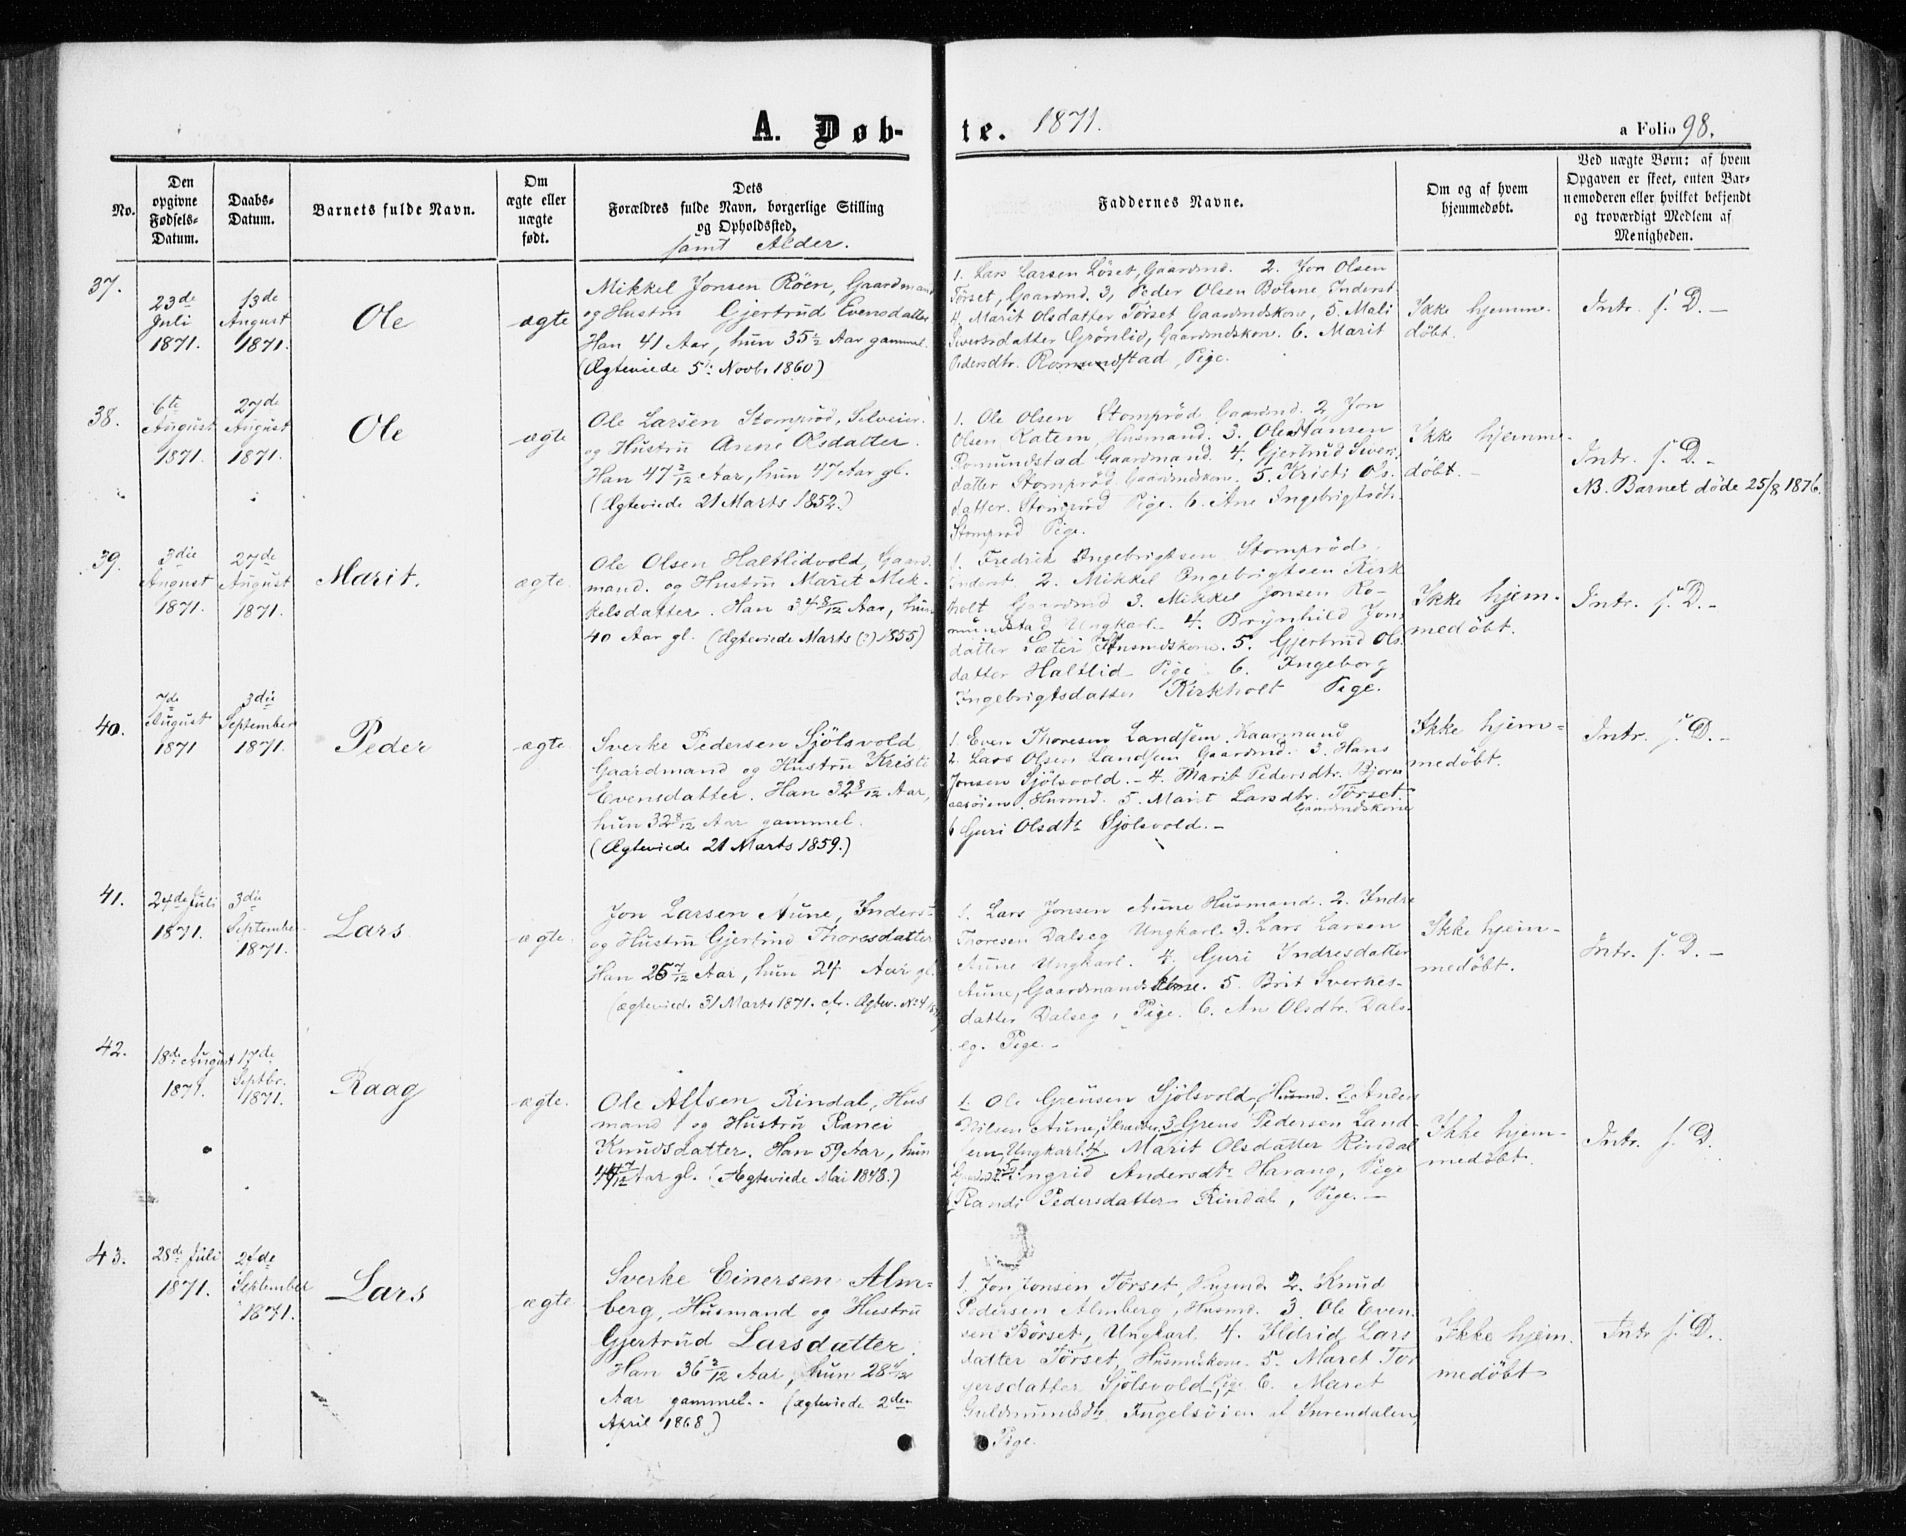 A. Døbte. 1871.
a Folio 98.
No.
Den opgivne Fødsels-Datum.
Daabs-Datum.
Barnets fulde Navn.
Om ægte eller uægte født.
Dets Forældres fulde Navn, borgerlige Stilling og Opholdssted,
samt Alder.
Faddernes Navne.
Om og af hvem hjemmedøbt.
Ved uægte Børn: af hvem Opgaven er skeet, enten Barnemoderen eller hvilket bekjendt og troværdigt Medlem af Menigheden.
37.
23de Juli 1871.
13de August 1871.
Ole
ægte
Mikkel Jonsen Röen, Gaardmand
og Hustru Gjertrud Evensdatter
Han 41 Aar, hun 35½ Aar gammel.
(Ægteviede 5t Novb. 1860)
1. Lars Larsen Löset, Gaardmd. 2. Jon Olsen
Törset, Gaardmd. 3, Peder Olsen Bolme, Inderst
4. Marit Olsdatter Törset Gaardmdskone, 5. Mali
Siversdatter Grönlid, Gaardmdskone. 6. Marit
Pedersdtr. Romundstad, Pige.
Ikke hjemme-
döbt.
Intr. f. D. –
38.
6te August 1871.
27de August 1871.
Ole
ægte
Ole Larsen Stomprød, Selveier.
og Hustru Anne Olsdatter.
Han 47 2/12 Aar, hun 47 Aar gl.
(Ægteviede 21 Marts 1852.)
1. Ole Olsen Stomprød Gaardmd. 2, Jon
Olsen Katem, Husmand. 3. Ole Hansen
Romundstad Gaardmand. 4. Gjertrud Sivers
datter Stomprød Gaardmdskone. 5. Kristi Ols-
datter. Stomprød Pige. 6. Ane Ingebrigtsdt.
Stomprød Pige.
Ikke hjemme-
döbt. –
Intr. f. D. –
NB. Barnet døde 25/8 1876.
39.
3die August 1871.
27de August 1871.
Marit.
ægte.
Ole Olsen Haltlidvold, Gaard-
mand. og Hustru Marit Mik-
kelsdatter. Han 34 8/12 Aar, hun
40 Aar gl. (Ægteviede Marts (?) 1855)
1. Fredrik Ingebrigtsen Stomprød,
Inderst, 2. Mikkel Ingebrigtsen Kirk
holt Gaardmd 3. Mikkel Jonsen Ro-
mundstad Ungkarl. 4. Brynhild Jon
datter Sæter Husmdskone. 5. Gjertrud Ols-
datter Haltlid Pige. 6. Ingeborg
Ingebrigtsdatter Kirkholt Pige.
Ikke hjem-
medöbt.
Intr. f. D. –
40.
7de August 1871
3die September 1871.
Peder
ægte
Sverke Pedersen Sjölsvold
Gaardmand og Hustru Kristi
Evensdatter. Han 32 8/12 Aar,
hun 32 8/12 Aar gammel.
(Ægteviede 21 Marts 1859.)
1 Even Thoresen Landsem Kaarmand
2. Lars Olsen Landsem Gaardmd. 3. Hans
Jonsen Sjölsvold. – 4. Marit Pedersdtr. Bjorn
aasöien. Husmd. 5. Marit Larsdtr. Törset
Gaardmdskone
6 Guri Olsdtr Sjölsvold. –
Ikke hjem-
medöbt.
Intr. f. D. –
41.
24de Juli 1871.
3die September 1871.
Lars
ægte.
Jon Larsen Aune, Inderst
og Hustru Gjertrud Thoresdatter
Han 25 7/12 Aar, hun 24 Aar gl.
(ægteviede 31 Marts 1871. cfr. Ægtev. No 4
1. Lars Jonsen Aune Husmand. 2. Indre
Thoresen Dalseg Ungkarl. 3. Lars Larsen
Aune Ungkarl. 4. Guri Indresdatter
Aune, Gaardmandskone. 5. Brit Sverkes-
datter Dalseg, Pige. 6. Ane Olsdtr. Dals-
eg. Pige. –
Ikke hjem-
medøbt.
Intr. f. D. –
42.
18de August 1871.
17de Septbr. 1871.
Raag
ægte.
Ole Allsen Rindal, Hus
mand og Hustru Ranei
Knudsdatter. Han 59 Aar, hun
7/12 Aar gl. (Ægteviede Mai 1848.)
1. Ole Grensen Sjölsvold, Husmd. 2. Anders
Nilsen Aune, Skræder, 3. Grens Pedersen Land-
sem, Ungkarl. 4. Marit Olsdatter Rindal
5. Ingrid Andersdtr Harang, Pige
Randi Pedersdatter Rindal, Pige. –
Ikke hjem-
medøbt.
Intr. f. D.
43.
28de Juli 1871.
24de September 1871.
Lars
ægte
Sverke Einersen Alm-
berg, Husmand og Hustru
Gjertrud Larsdatter.
Han 36 3/12 Aar, hun 28 4/12
Aar gammel. (ægteviede 2den
April 1868.)
1. Jon Jonsen Törset, Husmd. 2. Knud
Pedersen Almberg, Husmd. 3. Ole Even-
sen Börset, Ungkarl. 4. Ildrid Lars
datter Törset, Husmdskone. 5. Maret Tor
gersdatter Sjölsvold, Pige 6. Maret
Guldmundsdtr Ingelsöien af Surendalen,
Pige.
Ikke hjem-
medøbt
Intr f. D.